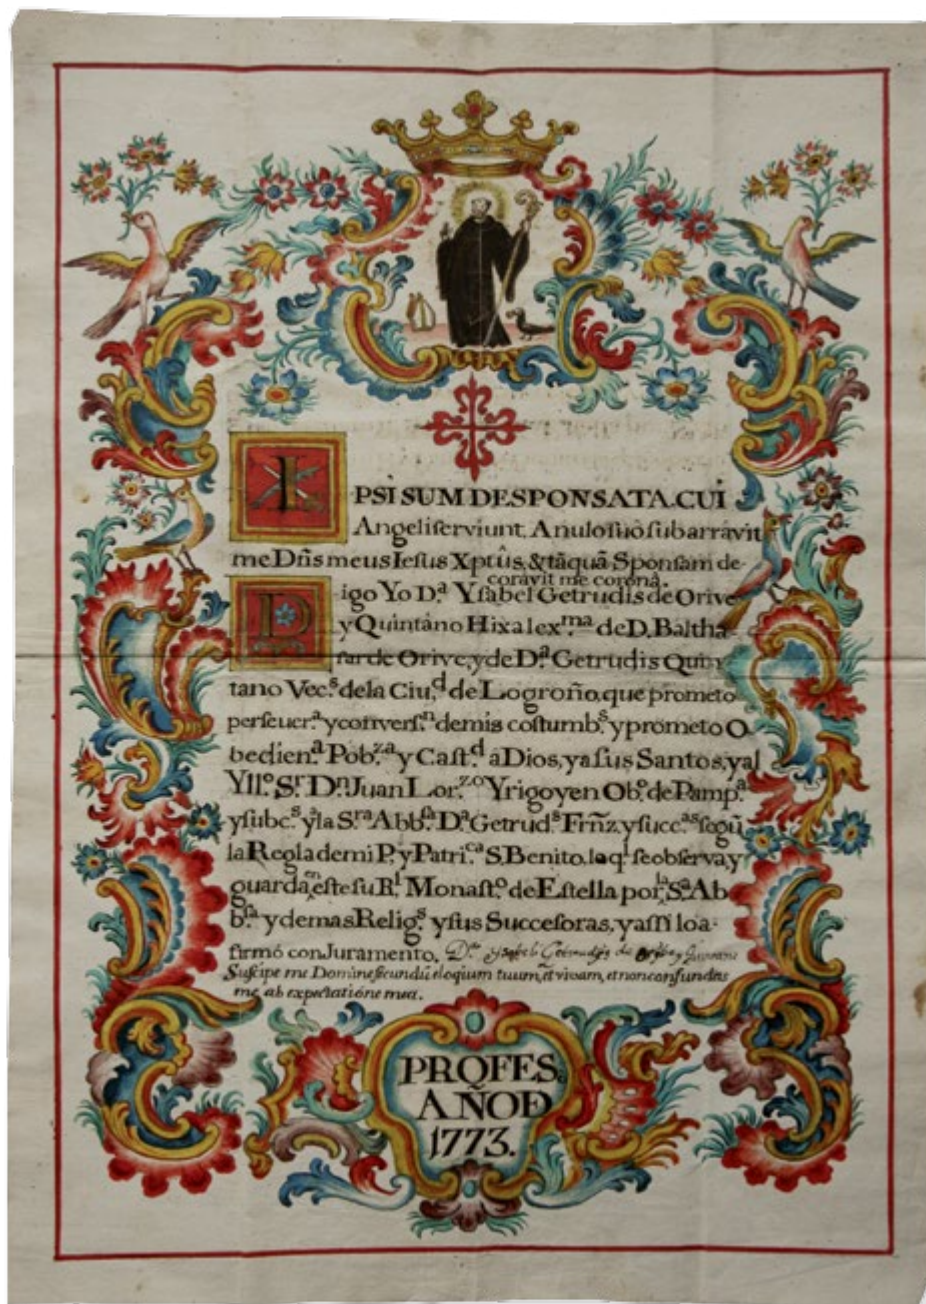 IPSI SUM DESPONSATA. CUI
Angeli serviunt. Anulo suò subarrávit
me Dñs meus Iesus Xptûs, & tãquã Sponsam de-
corávit me coronâ.
Digo Yo D.ª Ysabel Getrudis de Orive
y Quintáno Hixa lex.ma de D. Baltha-
sar de Orive, y de D.ª Getrudis Quin-
tano Vec.s de la Ciu.d de Logroño, que prometo
perseuer.ª y convers.n de mis costumb.s y prometo O-
bedien.ª Pob.za y Cast.d â Dios, ya sus Santos, y al
Yll.º S.r D.n Juan Lor.zo Yrigoyen Ob.º de Pamp.ª
y subc.s y âla S.ra Abb.sa D.ª Getrud.s Frñz, y succ.as segũ
la Regla de mi P. y Patri.ca S. Benito, lo q.l se observa, y
guarda, en este su R.l Monast.º de Estella por la S.ª Ab-
b.sa y demas Relig.s y sus Succesoras, y assi lo a-
firmó con Juramento. D.ª Ysabel Getrudis de Orive y Quintano
Suscipe me Domine secundũ eloqium tuum, et vivam, et non confundas
me ab expectatióne mea.
PROFES.
AÑO D
1773.